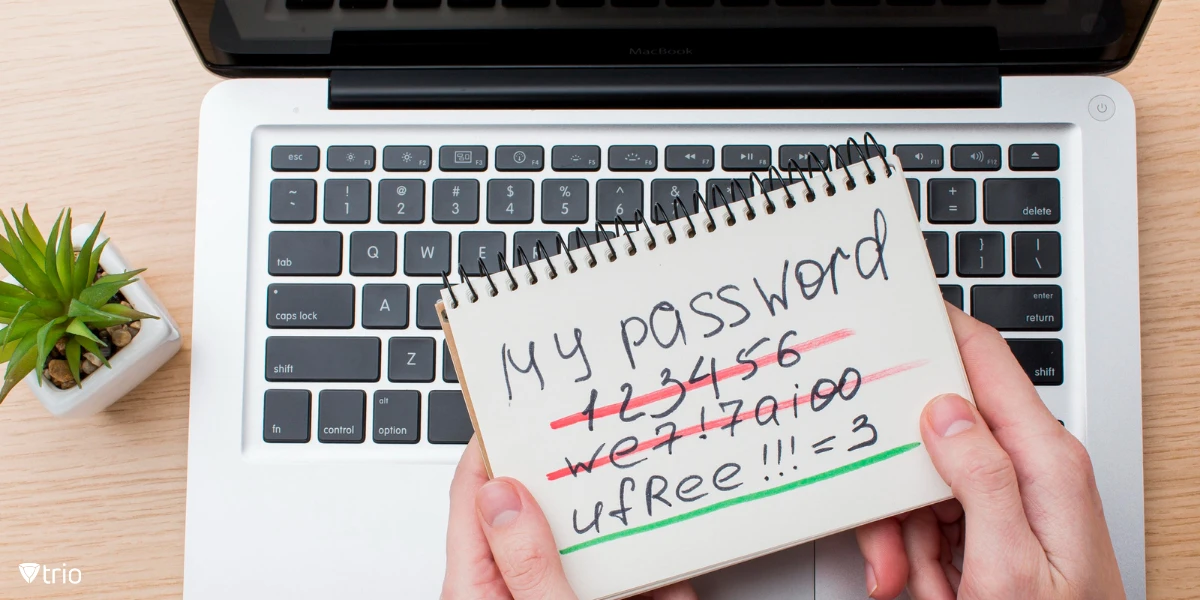 MacBook
esc F1 F2 F3 F4 F5 F6 F7 F8 F11 F12
~ ` ! 1 @ 2 # 3 $ 4 % 5 ^ 6 & + = delete
tab Q W E } ] | \
caps lock A enter return
shift Z shift
fn control alt option
My password
123456
we7!7aioo
ufRee!!!=3
trio